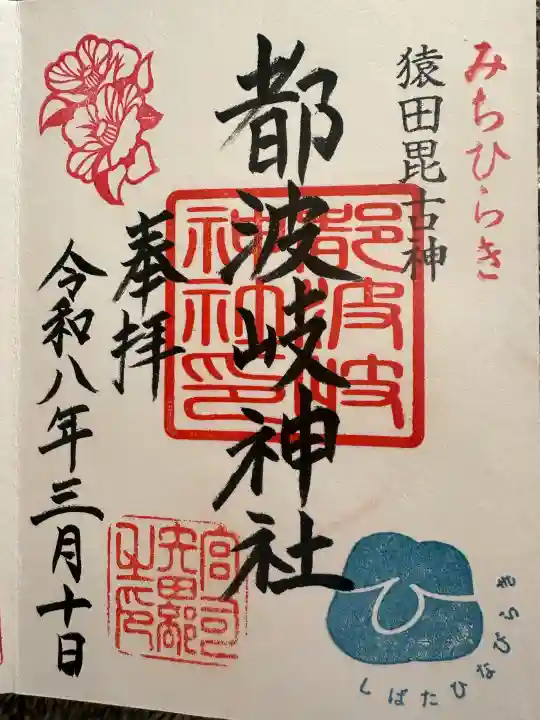 みちひらき
猿田毘古神
都波岐神社
都波岐
神社印
奉拝
令和八年三月十日
宮司
之印
ひ
しばたひなびらき